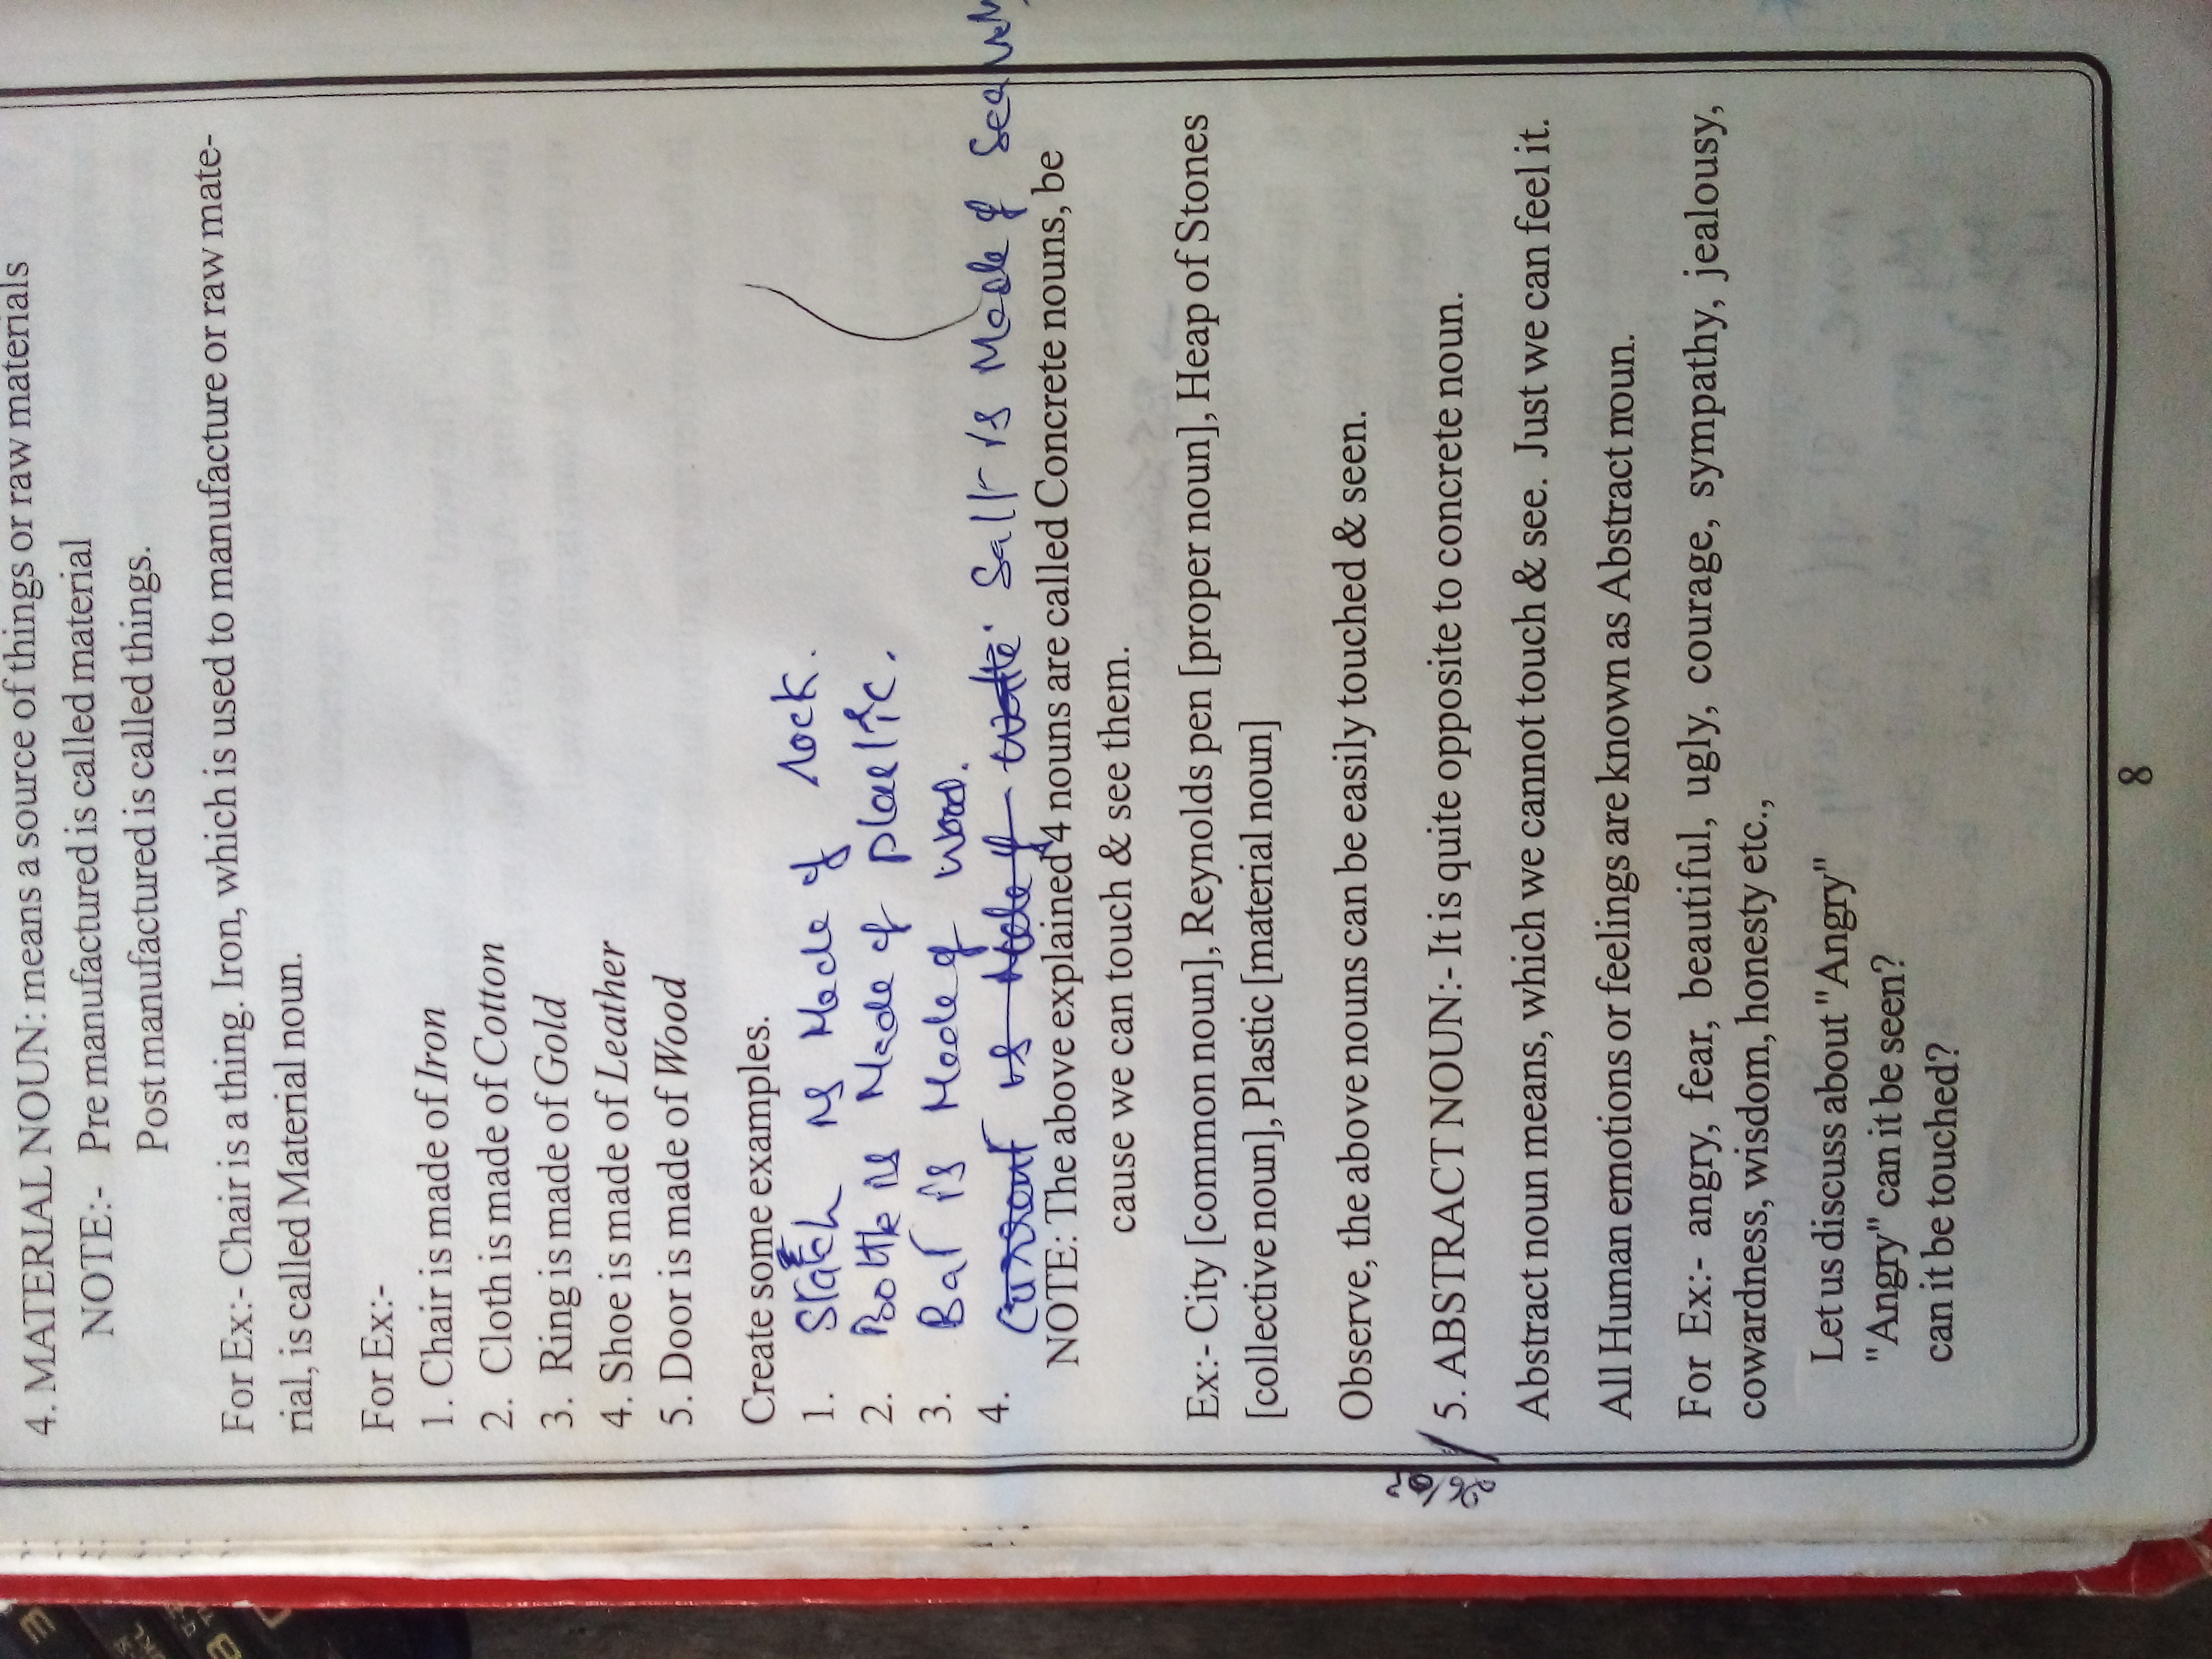 4. MATERIAL NOUN: means a source of things or raw materials
NOTE:- Pre manufactured is called material
Post manufactured is called things.
For Ex:- Chair is a thing. Iron, which is used to manufacture or raw mate-
rial, is called Material noun.
For Ex:-
1. Chair is made of Iron
2. Cloth is made of Cotton
3. Ring is made of Gold
4. Shoe is made of Leather
5. Door is made of Wood
Create some examples.
1. is Made of rock.
2. Bottle is Made of plastic.
3. Bat is Made of wood.
4. current is Made of Salt is Made of
NOTE: The above explained 4 nouns are called Concrete nouns, be
cause we can touch & see them.
Ex:- City [common noun], Reynolds pen [proper noun], Heap of Stones
[collective noun], Plastic [material noun]
Observe, the above nouns can be easily touched & seen.
5. ABSTRACT NOUN:- It is quite opposite to concrete noun.
Abstract noun means, which we cannot touch & see. Just we can feel it.
All Human emotions or feelings are known as Abstract noun.
For Ex:- angry, fear, beautiful, ugly, courage, sympathy, jealousy,
cowardness, wisdom, honesty etc.,
Let us discuss about "Angry"
"Angry" can it be seen?
can it be touched?
8